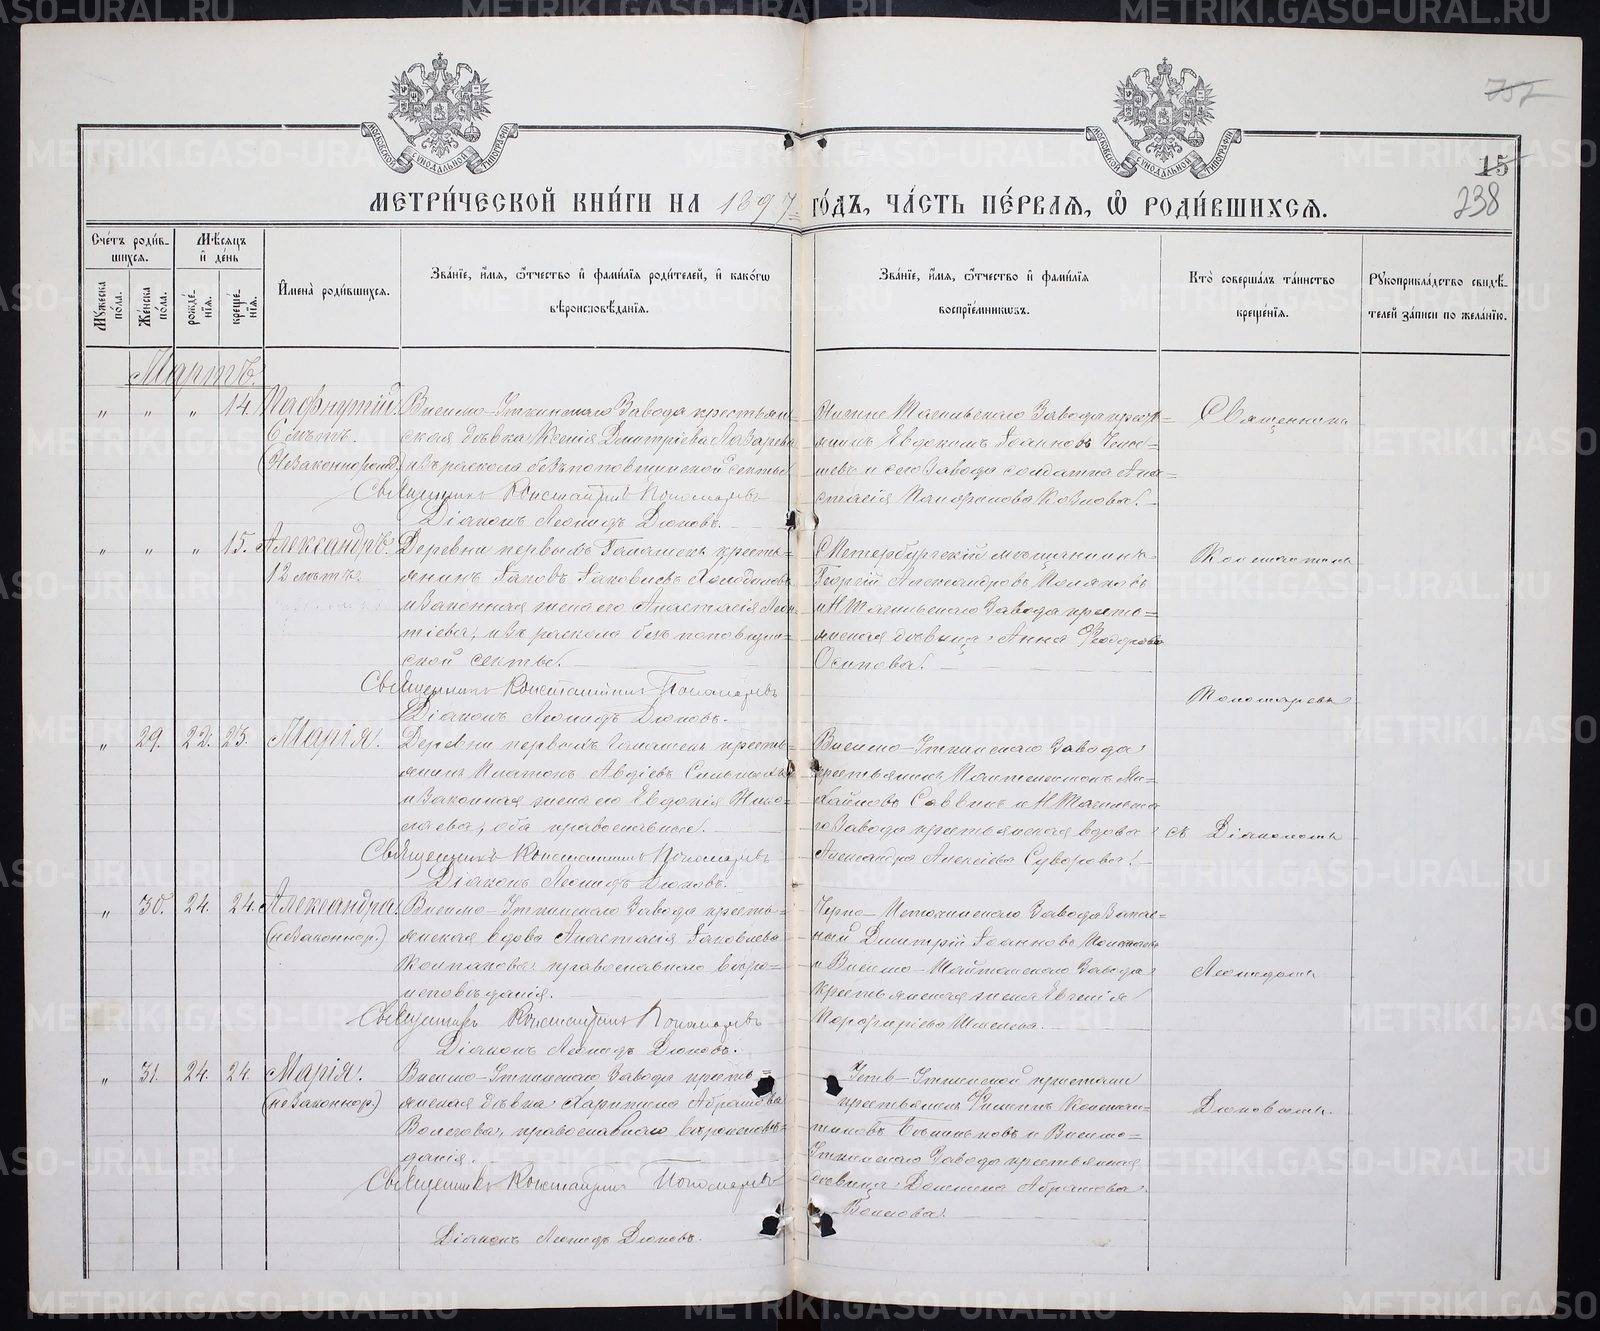 МЕТРИ́ЧЕСКОЙ КНИ́ГИ НА 1897 ГО́ДЪ, ЧА́СТЬ ПЕ́РВАЯ, Ѡ РОДИ́ВШИХСЯ.
15
238
Сче́тъ роди́в-
шихся.
Му́жеска по́ла.
Же́нска по́ла.
Мѣ́сяцъ и҆ де́нь
рожде́-
нїя.
креще́-
нїя.
И҆мена̀ роди́вшихся.
Зва́нїе, и҆́мя, ѻ҆́тчество и҆ фами́лїя роди́телей, и҆ како́гѡ
вѣроисповѣ́данїя.
Зва́нїе, и҆́мя, ѻ҆́тчество и҆ фами́лїя
воспрїе́мникѡвъ.
Кто̀ соверша́лъ та́инство
креще́нїя.
Рꙋкоприкла́дство свидѣ́-
телей за́писи по жела́нїю.
Мартъ.
" " " 14. Пафнутій
6 лѣтъ.
(Незаконнорожд.)
Висимо-Уткинскаго Завода крестьян
ская дѣвка Ксенія Дмитріева Лазарева
изъ раскола безпоповщинской секты
Священникъ Константинъ Пономаревъ
Діаконъ Леонидъ Дюковъ.
Нижне Тагильскаго Завода крест
янинъ Евдокимъ Іоанновъ
шевъ и сего Завода солдатка Ана
стасія Козлова.
Священникъ
" " " 15. Александръ.
12 лѣтъ.
Деревни первыхъ Галашекъ кресть=
янинъ Іаковъ Іаковлевъ Холодиловъ
и законная жена его Анастасія Леон
тіева, изъ раскола безпоповщин=
ской секты.
Священникъ Константинъ Пономаревъ
Діаконъ Леонидъ Дюковъ.
С Петербургскій мѣщанинъ
Георгій Александровъ Поляковъ
и Н Тагильскаго Завода кресть=
янская дѣвица Анна Ѳеодорова
Осипова.
Константинъ
Пономаревъ
" 29. 22. 23. Марія.
Деревни первыхъ Галашекъ кресть=
янинъ Платонъ Авдіевъ
и законная жена его Евдокія Нико=
лаева, оба православные.
Священникъ Константинъ Пономаревъ
Діаконъ Леонидъ Дюковъ.
Висимо-Уткинскаго Завода
крестьянинъ Пантелеимонъ Ми=
хайловъ Саввинъ и Н Тагильска
го Завода крестьянская вдова
Александра Алексіева Суворова.
съ Діакономъ
" 30. 24. 24. Александра
(незаконнор.)
Висимо-Уткинскаго Завода кресть=
янская вдова Анастасія Іаковлева
Колпакова православнаго вѣро=
исповѣданія.
Священникъ Константинъ Пономаревъ
Діаконъ Леонидъ Дюковъ.
Черно-Источинскаго Завода запас=
ный Дмитрій Іоанновъ
и Висимо-Шайтанскаго Завода
крестьянская жена Евгенія
Порфиріева
Леонидомъ
" 31. 24. 24. Марія.
(незаконнор.)
Висимо-Уткинскаго Завода кресть=
янская дѣвка Харитина Абрамова
Волегова, православнаго вѣроисповѣ=
данія.
Священникъ Константинъ Пономаревъ
Діаконъ Леонидъ Дюковъ.
Усть-Уткинской пристани
крестьянинъ Филиппъ Констан=
тиновъ и Висимо=
Уткинскаго Завода крестьянская
дѣвица Абрамова
Дюковымъ.
METRIKI.GASO-URAL.RU